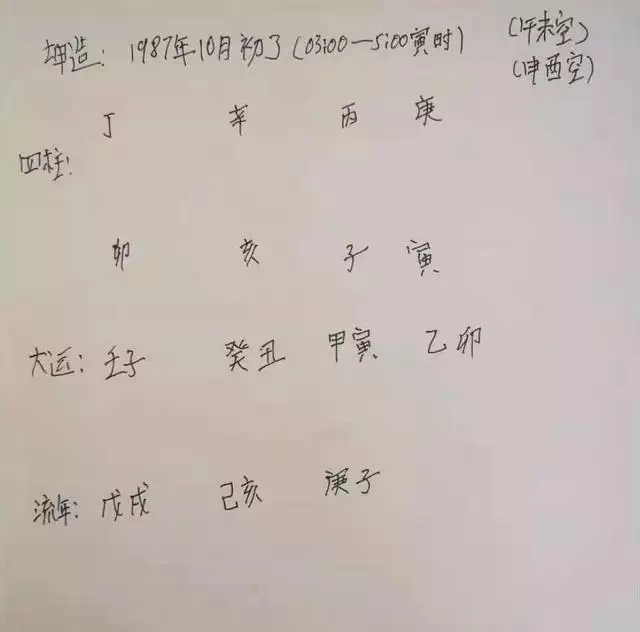 坤造: 1987年10月初3 (03:00—5:00寅时) (午未空)
(申酉空)
丁 辛 丙 庚
四柱:
卯 亥 子 寅
大运: 壬子 癸丑 甲寅 乙卯
流年: 戊戌 己亥 庚子